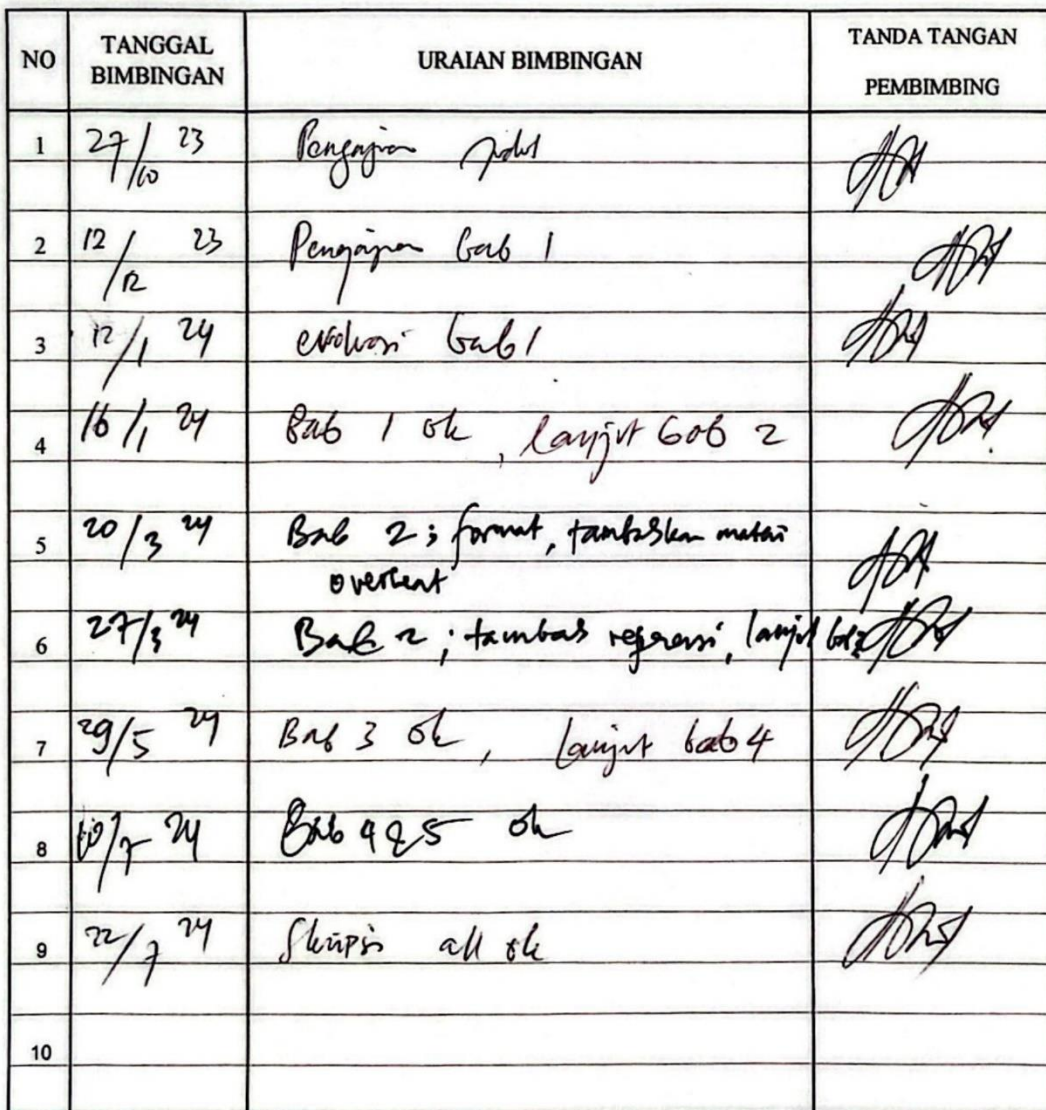 NO TANGGAL BIMBINGAN URAIAN BIMBINGAN TANDA TANGAN PEMBIMBING
1 27/10 23 Pengajuan judul
2 12/12 23 Pengajuan bab 1
3 12/1 24 evaluasi bab 1
4 16/1 24 Bab 1 ok, lanjut bab 2
5 20/3 24 Bab 2; format, tambahkan materi
overheat
6 27/3 24 Bab 2; tambah referensi, lanjut bab 3
7 29/5 24 Bab 3 ok, lanjut bab 4
8 24 Bab 4 & 5 ok
9 22/7 24 Skripsi all ok
10